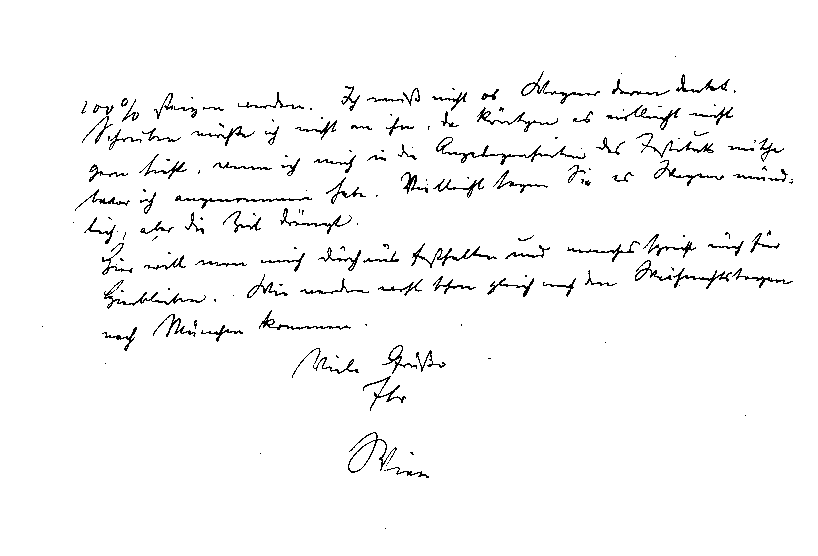 100% steigen werden. Ich weiß nicht ob Wagner daran denkt.
Schreiben möchte ich nicht an ihn, da Röntgen es vielleicht nicht
gern sieht, wenn ich mich in die Angelegenheiten des Instituts mische
bevor ich angenommen habe. Vielleicht sagen Sie es Wagner münd-
lich, aber die Zeit drängt.
Hier will man mich durchaus festhalten und manches spricht auch für
Hierbleiben. Wir werden wohl schon gleich nach den Weihnachtstagen
nach München kommen.
Viele Grüße
Ihr
Wien